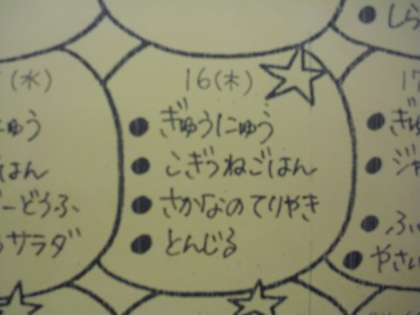 16(木)
ぎゅうにゅう
こぎつねごはん
さかなのてりやき
とんじる
(水)
にゅう
はん
ーどうふ
サラダ
しら
17
ぎゅ
ジャ
ふ
やさい